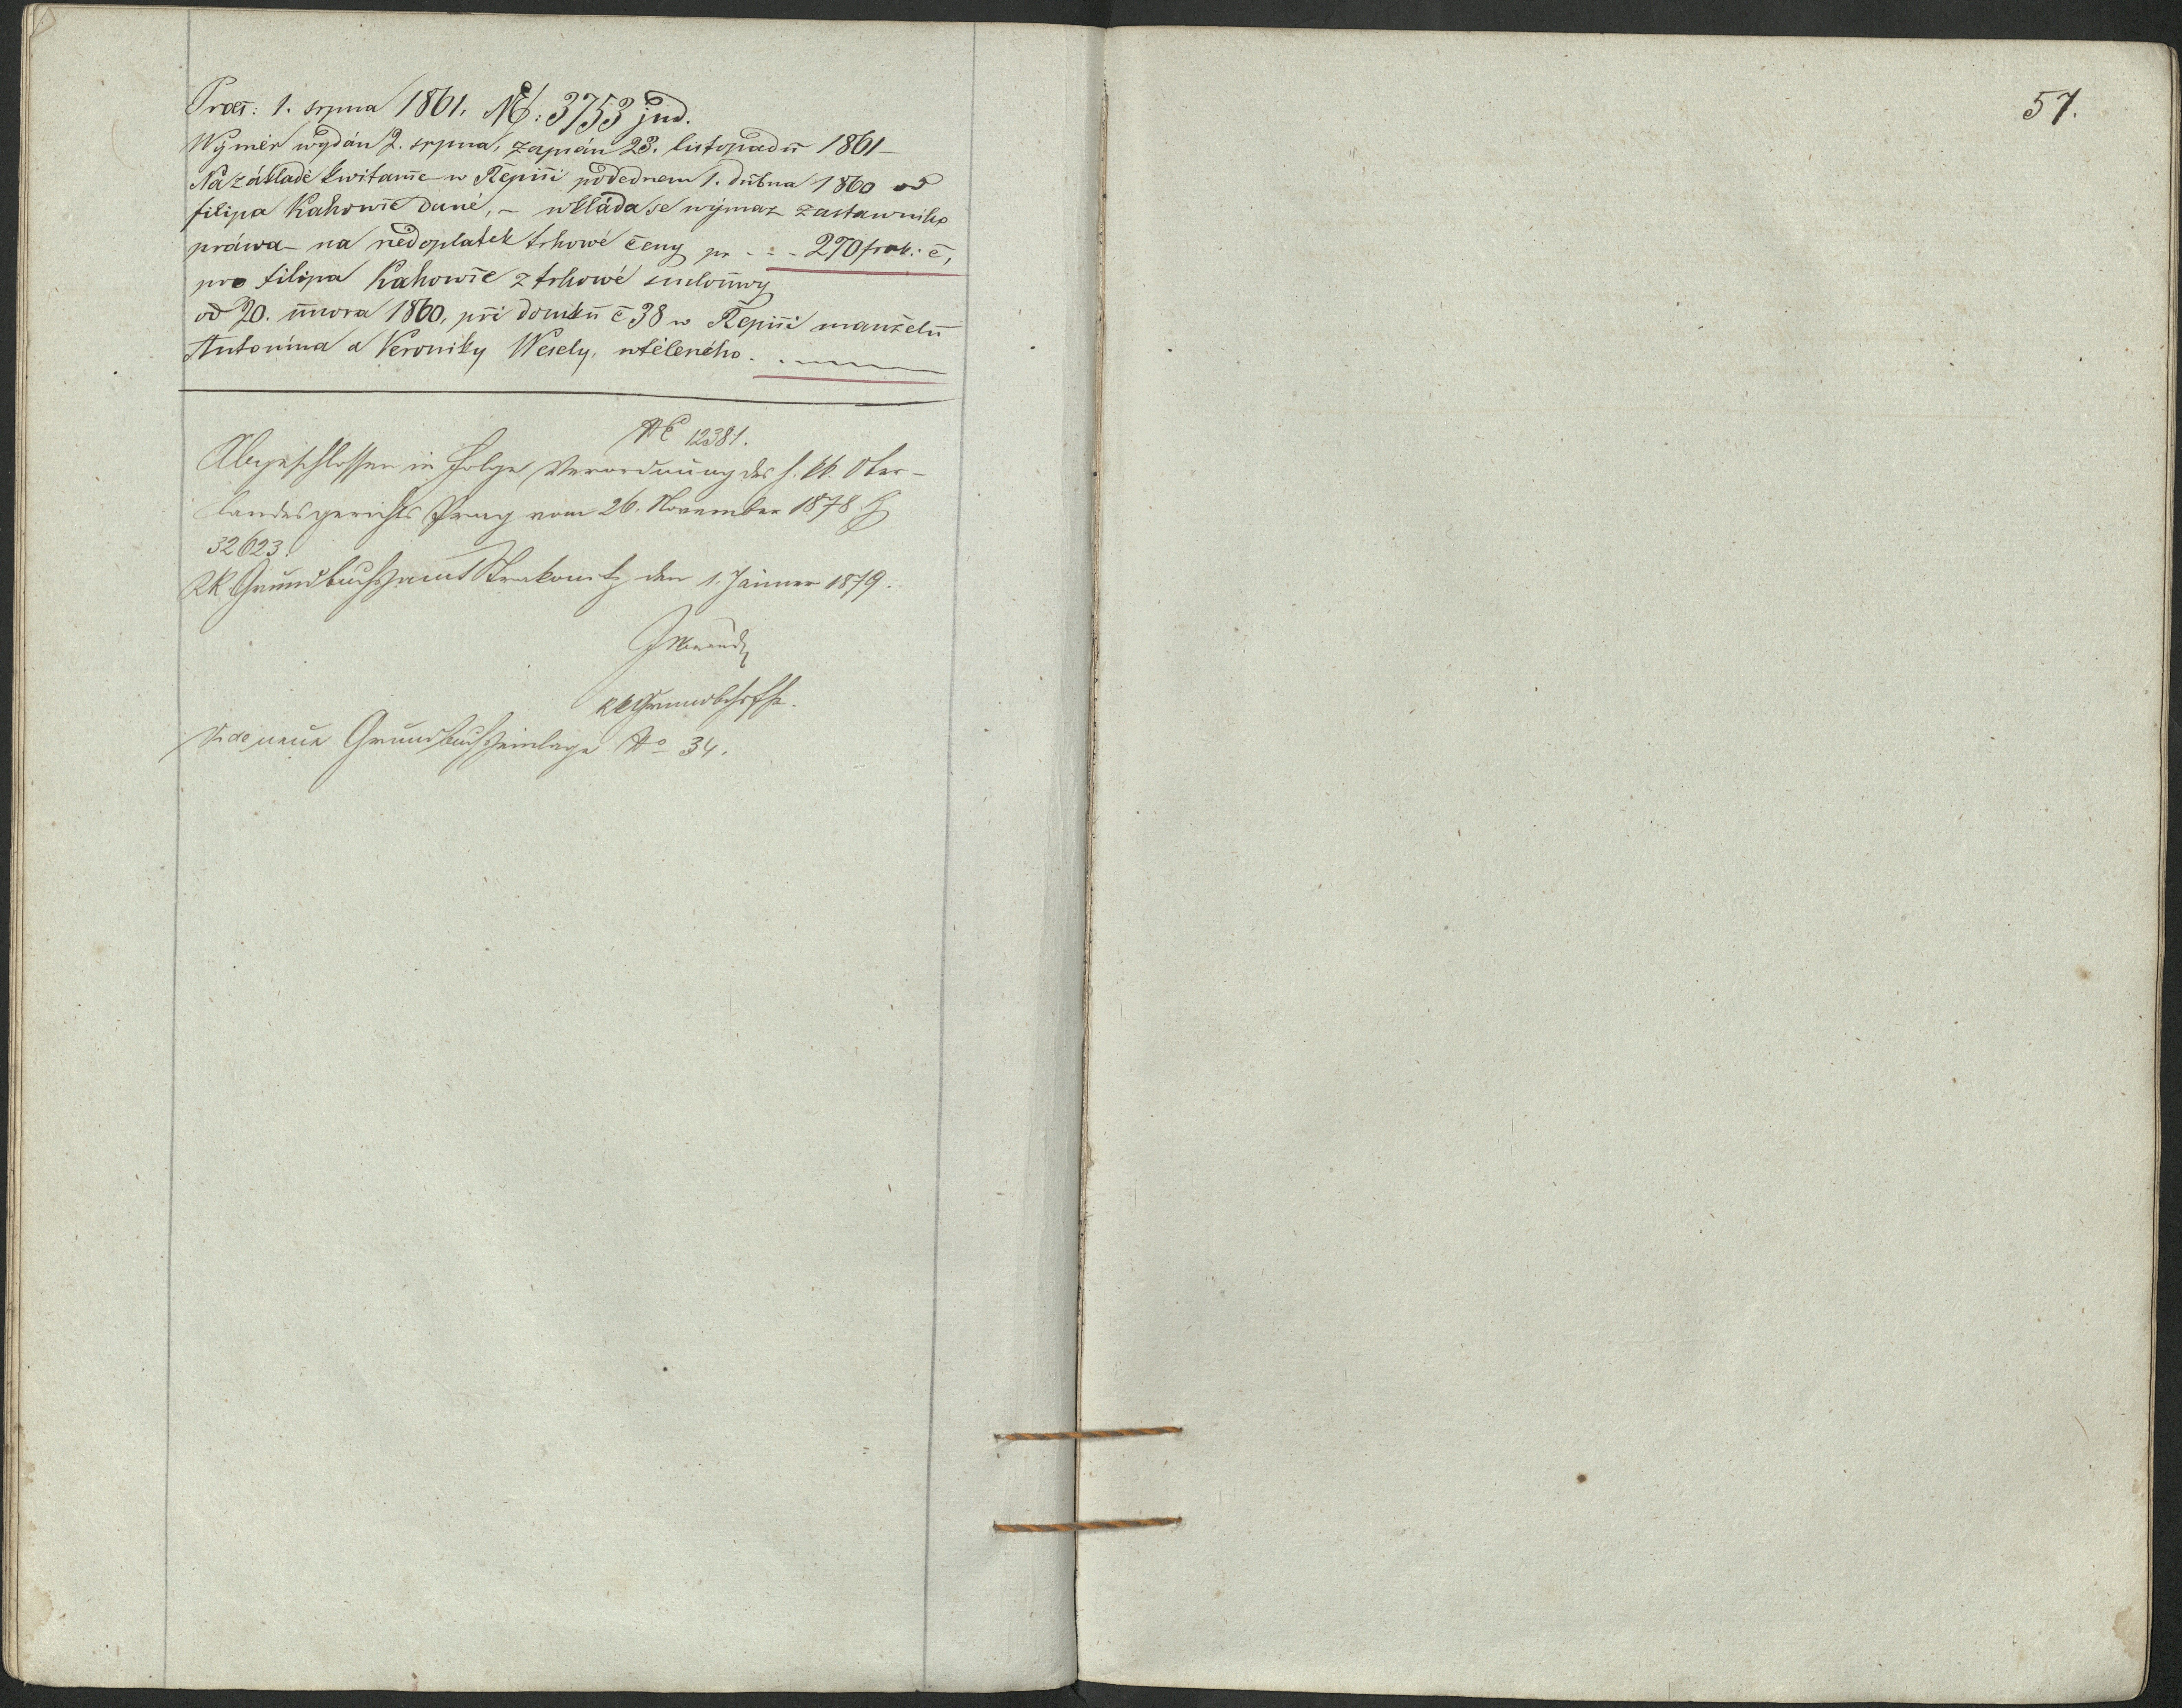 Praes: 1. srpna 1861. NE: 3753 jud.
Wýměr wydán 2. srpna, zapsán 23. listopadu 1861 –
Na základě kwitance w Řepici podednem 1. dubna 1860 od
Filipa Kahowic dané, – wkláda se wýmaz zastawního
práwa – na nedoplatek trhowé ceny pr - - - 270 frnk: č,
pro Filipa Kahowic z trhowé smlouwy
od 20. února 1860, při domku č 38 w Řepici manželů
Antonína a Veroniky Wesely, wtěleného.
NE 12381.
Abgeschlossen in Folge Verordnung des h. kk. Ober-
landesgerichts Prag vom 26. November 1878 Z
32623.
KK Grundbuchsamt Strakonitz den 1. Jänner 1879.
kk Grundbchsfhr.
Vide neue Grundbuchseinlage No 34.
57.